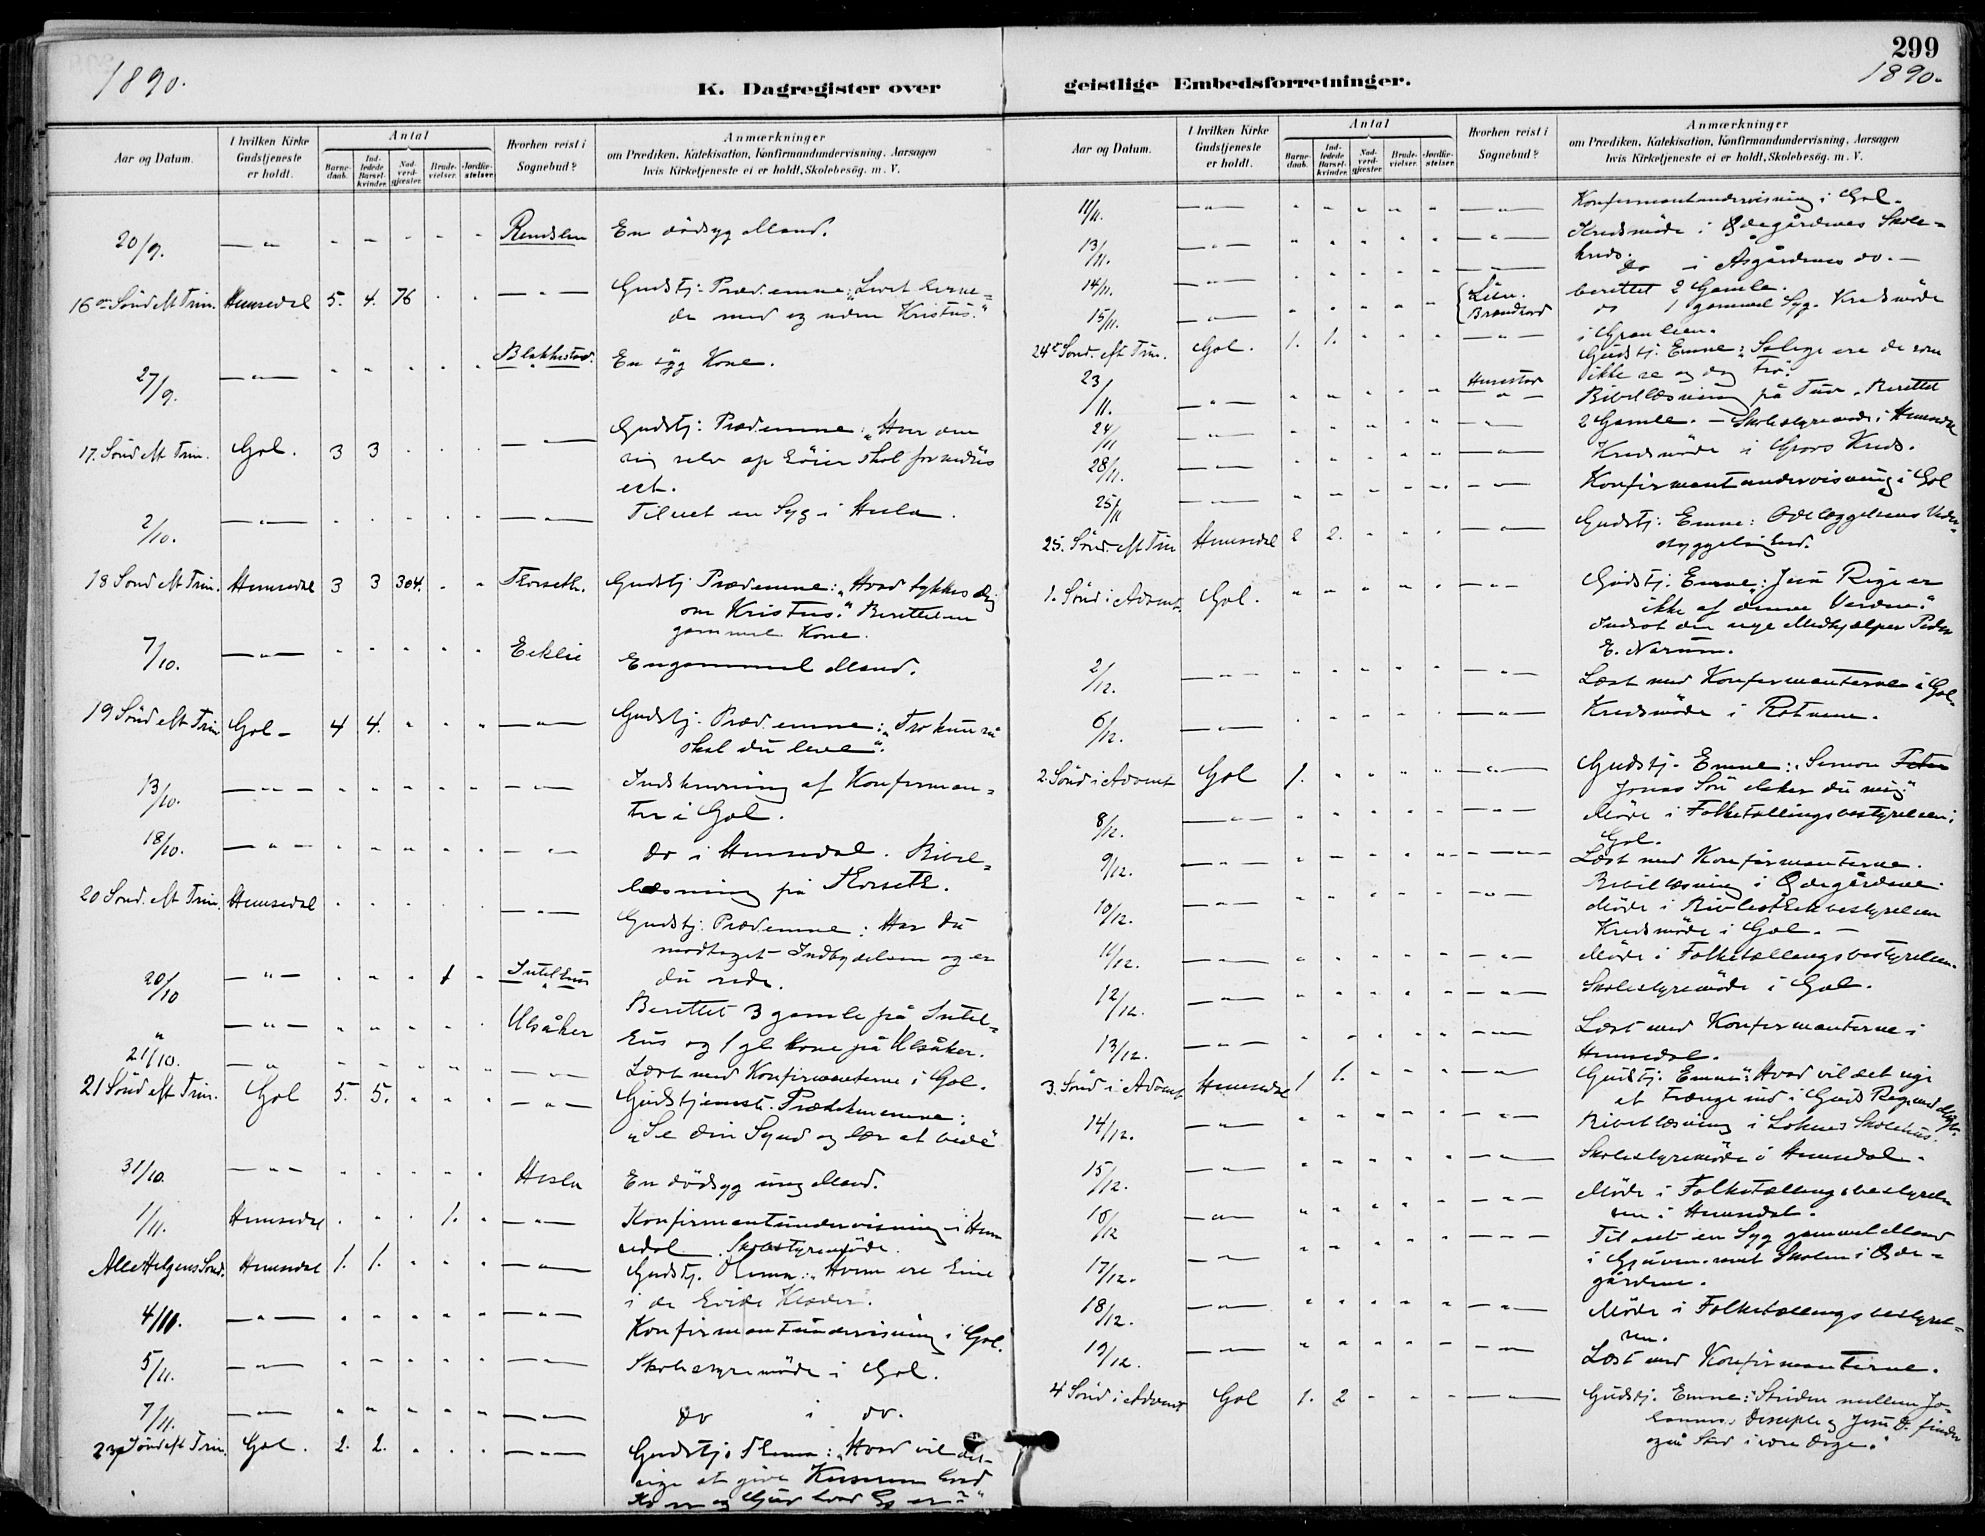 299
1890.
1890.
K. Dagregister over geistlige Embedsforretninger.
Aar og Datum.
I hvilken Kirke Gudstjeneste er holdt.
Antal
Barnedaab.
Indledede Barselkvinder.
Nadverdgjæster.
Brudevielser.
Jordfæstelser.
Hvorhen reist i Sognebud?
Anmærkninger
om Prædiken, Katekisation, Konfirmandundervisning, Aarsagen
hvis Kirketjeneste ei er holdt, Skolebesög. m. V.
20/9. En dödsyg Mand.
16de Sönd eft Trin. Hemsedal 5. 4. 76 Gudstj: Præd.emne: "Livet
med og uden Kristus."
27/9. En syg Kone.
17. Sönd eft Trin. Gol. 3 3 Gudstj: Præd.emne: "Hver som
sig selv
2/10. en Syg i Hesla.
18 Sönd eft Trin. Hemsedal 3 3 304. Gudstj Præd.emne: "Hvad tykkes dig
om Kristus." Berettet en
gammel Kone.
7/10. Eeklie En gammel Mand.
19 Sönd eft Trin Gol - 4 4. Gudstj. Præd.emne: "Tro kun så
skal du leve".
13/10. Indskrivning af Konfirman=
ter i Gol.
18/10. do i Hemsedal. Bibel=
læsning på
20 Sönd. eft Trin. Hemsedal Gudstj. Præd.emne: Har du
modtaget Indbydelsen og er
du rede.
20/10 1 Berettet 3 gamle på
Ulsåker og 1 gl kone på Ulsåker.
21/10. Læst med Konfirmanterne i Gol.
21 Sönd eft Trin. Gol 5. 5. Gudstjenest. Prædikenemne:
"Se din Synd og lær at bede"
31/10. Hesla En dödsyg ung Mand.
1/11. Hemsedal 1. Konfirmantundervisning i Hem
sedal. Skolestyremöde.
Alle Helgens Sönd. Hemsedal 1. 1. Gudstj. "Hvem ere
i de hvide Klæder".
4/11. Konfirmantundervisning i Gol.
5/11. Skolestyremöde i Gol.
7/11. do i do.
23 Sönd eft Trin. Gol. 2. 2. Gudstj: "Hvad vil det
sige at give
Aar og Datum.
I hvilken Kirke Gudstjeneste er holdt.
Antal
Barnedaab.
Indledede Barselkvinder.
Nadverdgjæster.
Brudevielser.
Jordfæstelser.
Hvorhen reist i Sognebud?
Anmærkninger
om Prædiken, Katekisation, Konfirmandundervisning, Aarsagen
hvis Kirketjeneste ei er holdt, Skolebesög. m. V.
11/11. Konfirmantundervisning i Gol.
13/11. Kredsmöde i Ödegårdenes Skole=
kreds.
14/11. do i Åsgårdenes do. -
15/11. Lien. berettet 2 Gamle.
do 1 gammel Syg. Kredsmöde
i Grønlien.
24de Sönd. eft Trin. Gol. 1. 1. Gudstj: Emne: "Salige ere de som
ikke se og dog tro."
23/11. Bibellæsning på Tuv. Berettet
24/11 2 Gamle. - Skolestyremöde i Hemsedal
28/11. Kredsmöde i Kreds.
25/11 Konfirmantundervisning i Gol
25. Sönd. eft Trin Hemsedal 2 2. Gudstj: Emne: Ödelæggelsens Veder-
styggelighed.
1. Sönd i Advent. Gol. Gudstj. Emne: Jesu Rige er
ikke af denne Verden."
Indsat den nye Medhjælper Peder
E. Narum.
2/12. Læst med Konfirmanterne i Gol.
6/12. Kredsmöde i Rotnem.
2. Sönd i Advent Gol 1. Gudstj. Emne: "Simon Peter
Jonas Sön elsker du mig"
8/12. Möde i Folketællingsbestyrelsen i
Gol.
9/12. Læst med Konfirmanterne.
Bibellæsning i Ödegårdene.
10/12. Möde i Bibliothekbestyrelsen
Kredsmöde i Gol. -
11/12. Möde i Folketællingsbestyrelsen.
12/12. Skolestyremöde i Gol.
13/12. Læst med Konfirmanterne i
Hemsedal.
3. Sönd i Advent Hemsedal 1 1. Gudstj. Emne: "Hvad vil det sige
at trænge ind i Guds Rige med Magt.
14/12. Bibellæsning i Skolehus.
15/12. Skolestyremöde i Hemsedal.
16/12 Möde i Folketællingsbestyrel
sen i Hemsedal.
17/12. en Syg gammel Mand
i Skolen i Öde=
gårdene.
18/12. Möde i Folketællingsbestyrel=
sen.
19/12. Læst med Konfirmanterne.
4 Sönd i Advent Gol 1. 2 Gudstj. Emne: "Striden mellem Jo-
hannes Disciple og Jesu D. finder
også Sted i vore Dage."